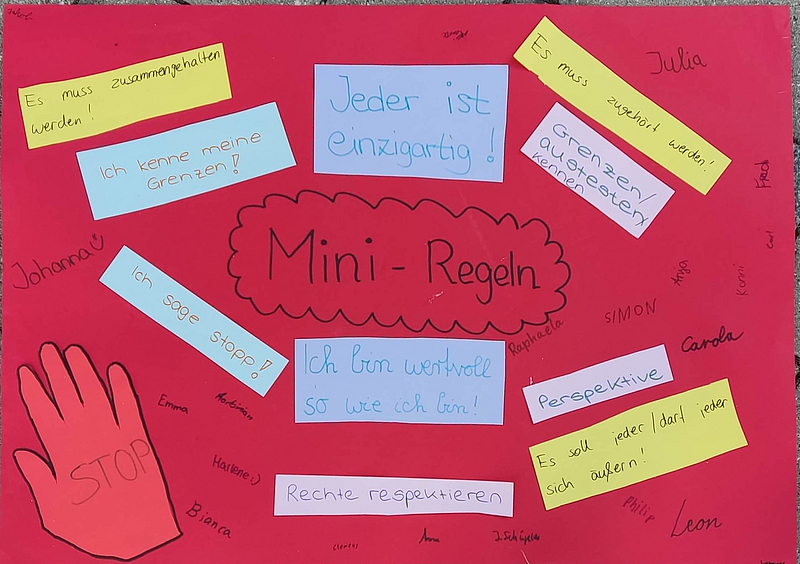 Es muss zusammengehalten
werden!
Ich kenne meine
Grenzen!
Jeder ist
einzigartig!
Es muss zugehört werden!
Julia
Grenzen/
austesten/
kennen
Fredi
Mini-Regeln
Johanna
Ich sage stopp!
Anja
Konni
SIMON
Raphaela
Carola
Ich bin wertvoll
so wie ich bin!
Perspektive
STOP
Emma
Es soll jeder/darf jeder
sich äußern!
Marlene :)
Rechte respektieren
Bianca
Philip
Leon
Clemens
Anna